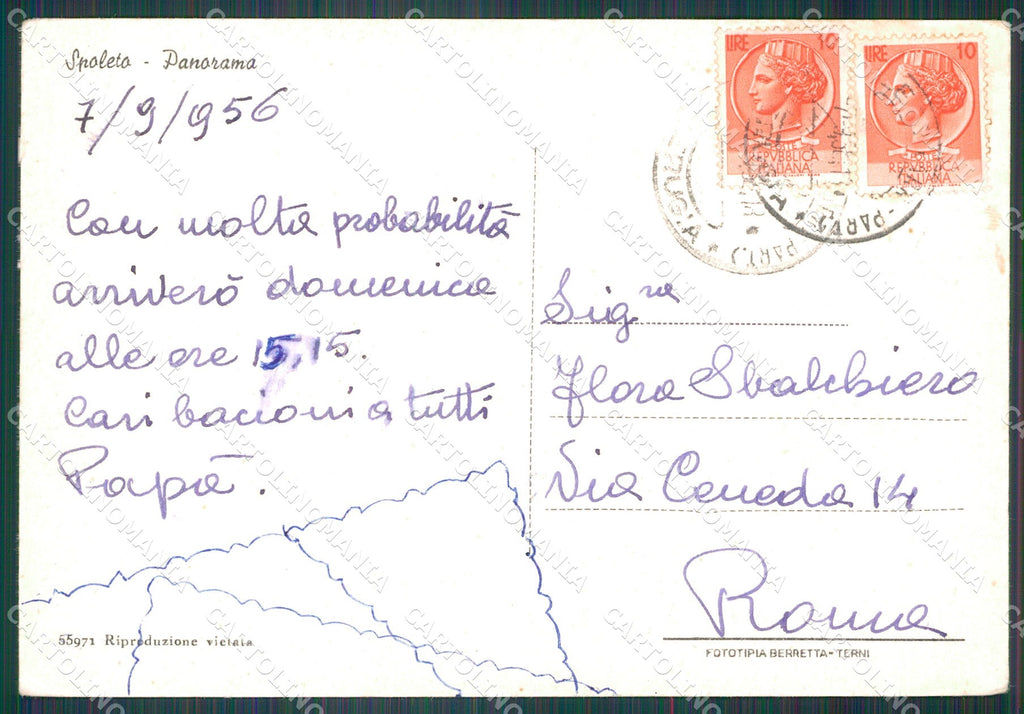 Spoleto - Panorama
7/9/956
Con molta probabilità
arriverò domenica
alle ore 15,15.
Cari bacioni a tutti
Papà.
55971 Riproduzione vietata
LIRE 10
POSTE
REPVBBLICA
ITALIANA
LIRE 10
POSTE
REPVBBLICA
ITALIANA
Sig.ra
Flora Sbalchiero
Via Ceneda 14
Roma
FOTOTIPIA BERRETTA - TERNI
CARTOLINOMANIA